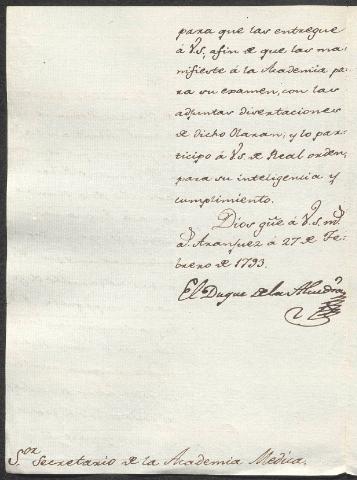 para que las entregue
á V.S., afin de que las ma-
nifieste á la Academia pa-
ra su examen, con las
adjuntas disertaciones
de dicho Olavan; y lo par-
ticipo á V.S. de Real orden,
para su inteligencia y
cumplimiento.
Dios güe á V.S. m.s
a.s Aranjuez á 27 de Fe-
brero de 1793.
El Duque de la Alcudia
S.or Secretario de la Academia Medica.